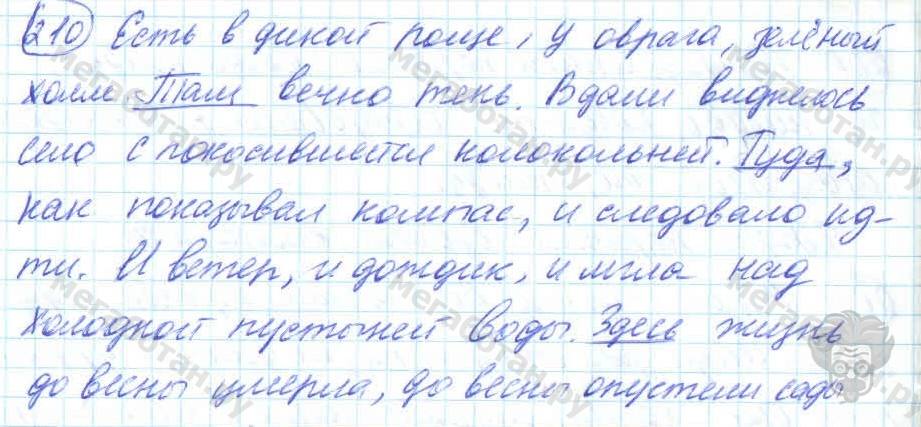 210 Есть в дикой роще, у оврага, зелёный
холм Там вечно тень. Вдали виднелось
село с покосившейся колокольней. Туда,
как показывал компас, и следовало ид-
ти. И ветер, и дождик, и мгла над
холодной пустыней воды. Здесь жизнь
до весны умерла, до весны опустели сады
мегаботан.ру